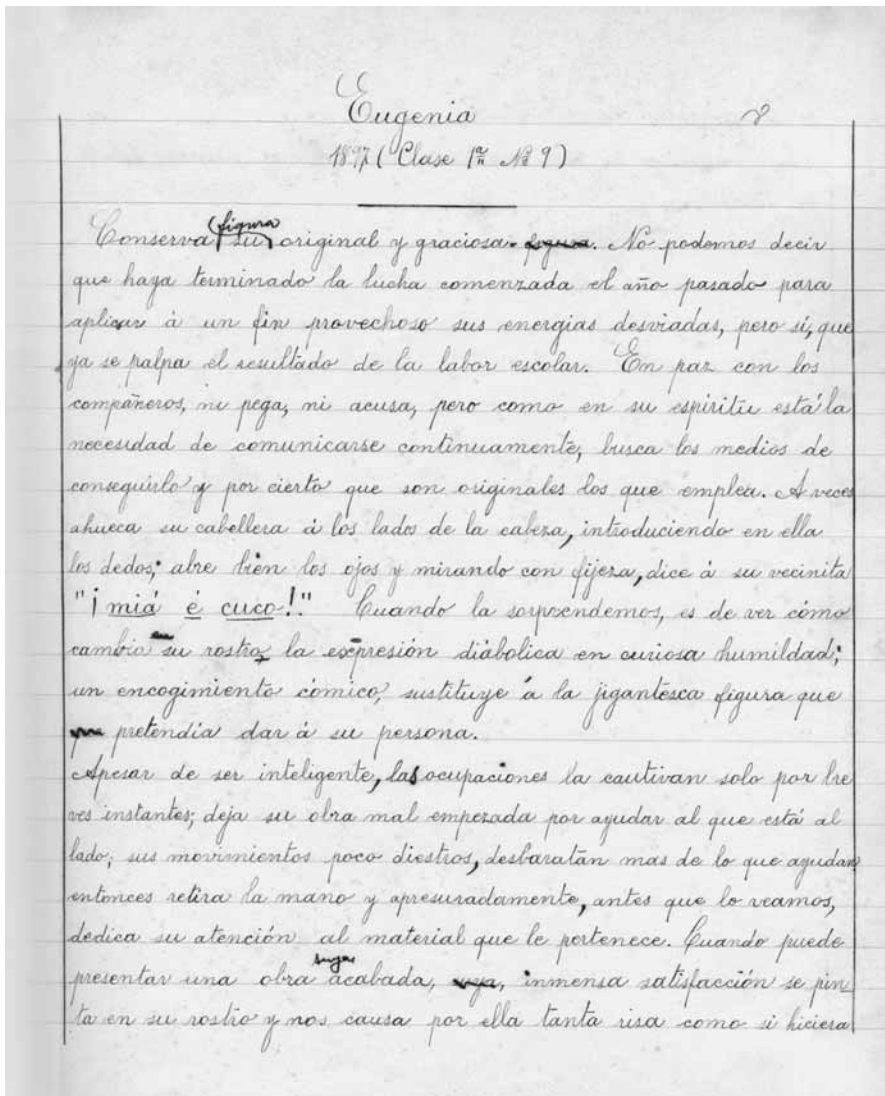 Eugenia 8
1897 (Clase 1ª Nº 9)
Conserva (figura su original y graciosa. figura. No podemos decir
que haya terminado la lucha comenzada el año pasado para
aplicar à un fin provechoso sus energias desviadas, pero sí, que
ya se palpa el resultado de la labor escolar. Em paz con los
compañeros, ni pega, ni acusa, pero como en su espíritu está la
necesidad de comunicarse contínuamente, busca los medios de
conseguirlo y por cierto que son originales los que emplea. A veces
ahueca su cabellera à los lados de la cabeza, introduciendo en ella
los dedos; abre bien los ojos y mirando con fijeza, dice à su vecinita
"¡miá é cuco!." Cuando la sorprendemos, es de ver cómo
cambia en su rostro la expresión diábolica en curiosa humildad;
un encogimiento cómico, sustituye á la jigantesca figura que
que pretendía dar à su persona.
Apesar de ser inteligente, las ocupaciones la cautivan solo por bre
ves instantes; deja su obra mal empezada por ayudar al que está al
lado; sus movimientos poco diestros, desbaratan mas de lo que ayudan,
entonces retira la mano y apresuradamente, antes que lo veamos,
dedica su atención al material que le pertenece. Cuando puede
presentar una obra suya acabada, suya, inmensa satisfacción se pin_
ta en su rostro y nos causa por ella tanta risa como si hiciera